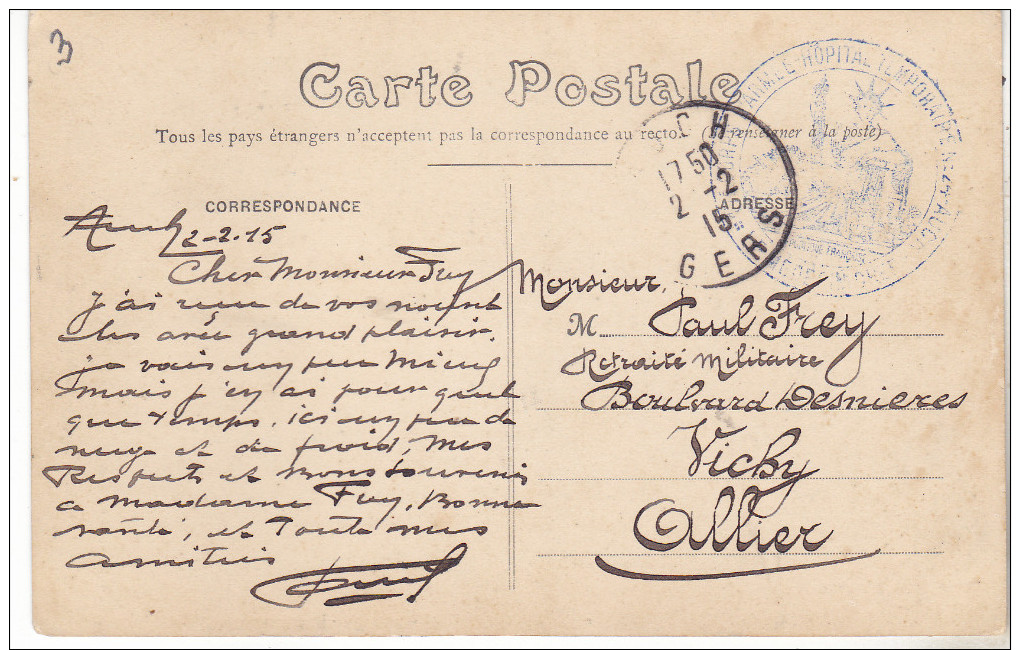 3
Carte Postale
Tous les pays étrangers n'acceptent pas la correspondance au recto. (Se renseigner à la poste)
CORRESPONDANCE
Auch 2-2-15
Cher Monsieur Frey
J'ai reçu de vos nouvel
les avec grand plaisir.
je vais un peu mieux
mais j'en ai pour quel
que temps. ici un peu de
neige et du froid, Mes
Respects et Bons souvenirs
a madame Frey, Bonne
santé, et Toute mes
amitiés
CH
17 50
2 -2
15
GERS
ARMÉE HOPITAL TEMPORAIRE
ADRESSE
Monsieur,
M Paul Frey
Retraité Militaire
Boulvard Desnieres
Vichy
Allier